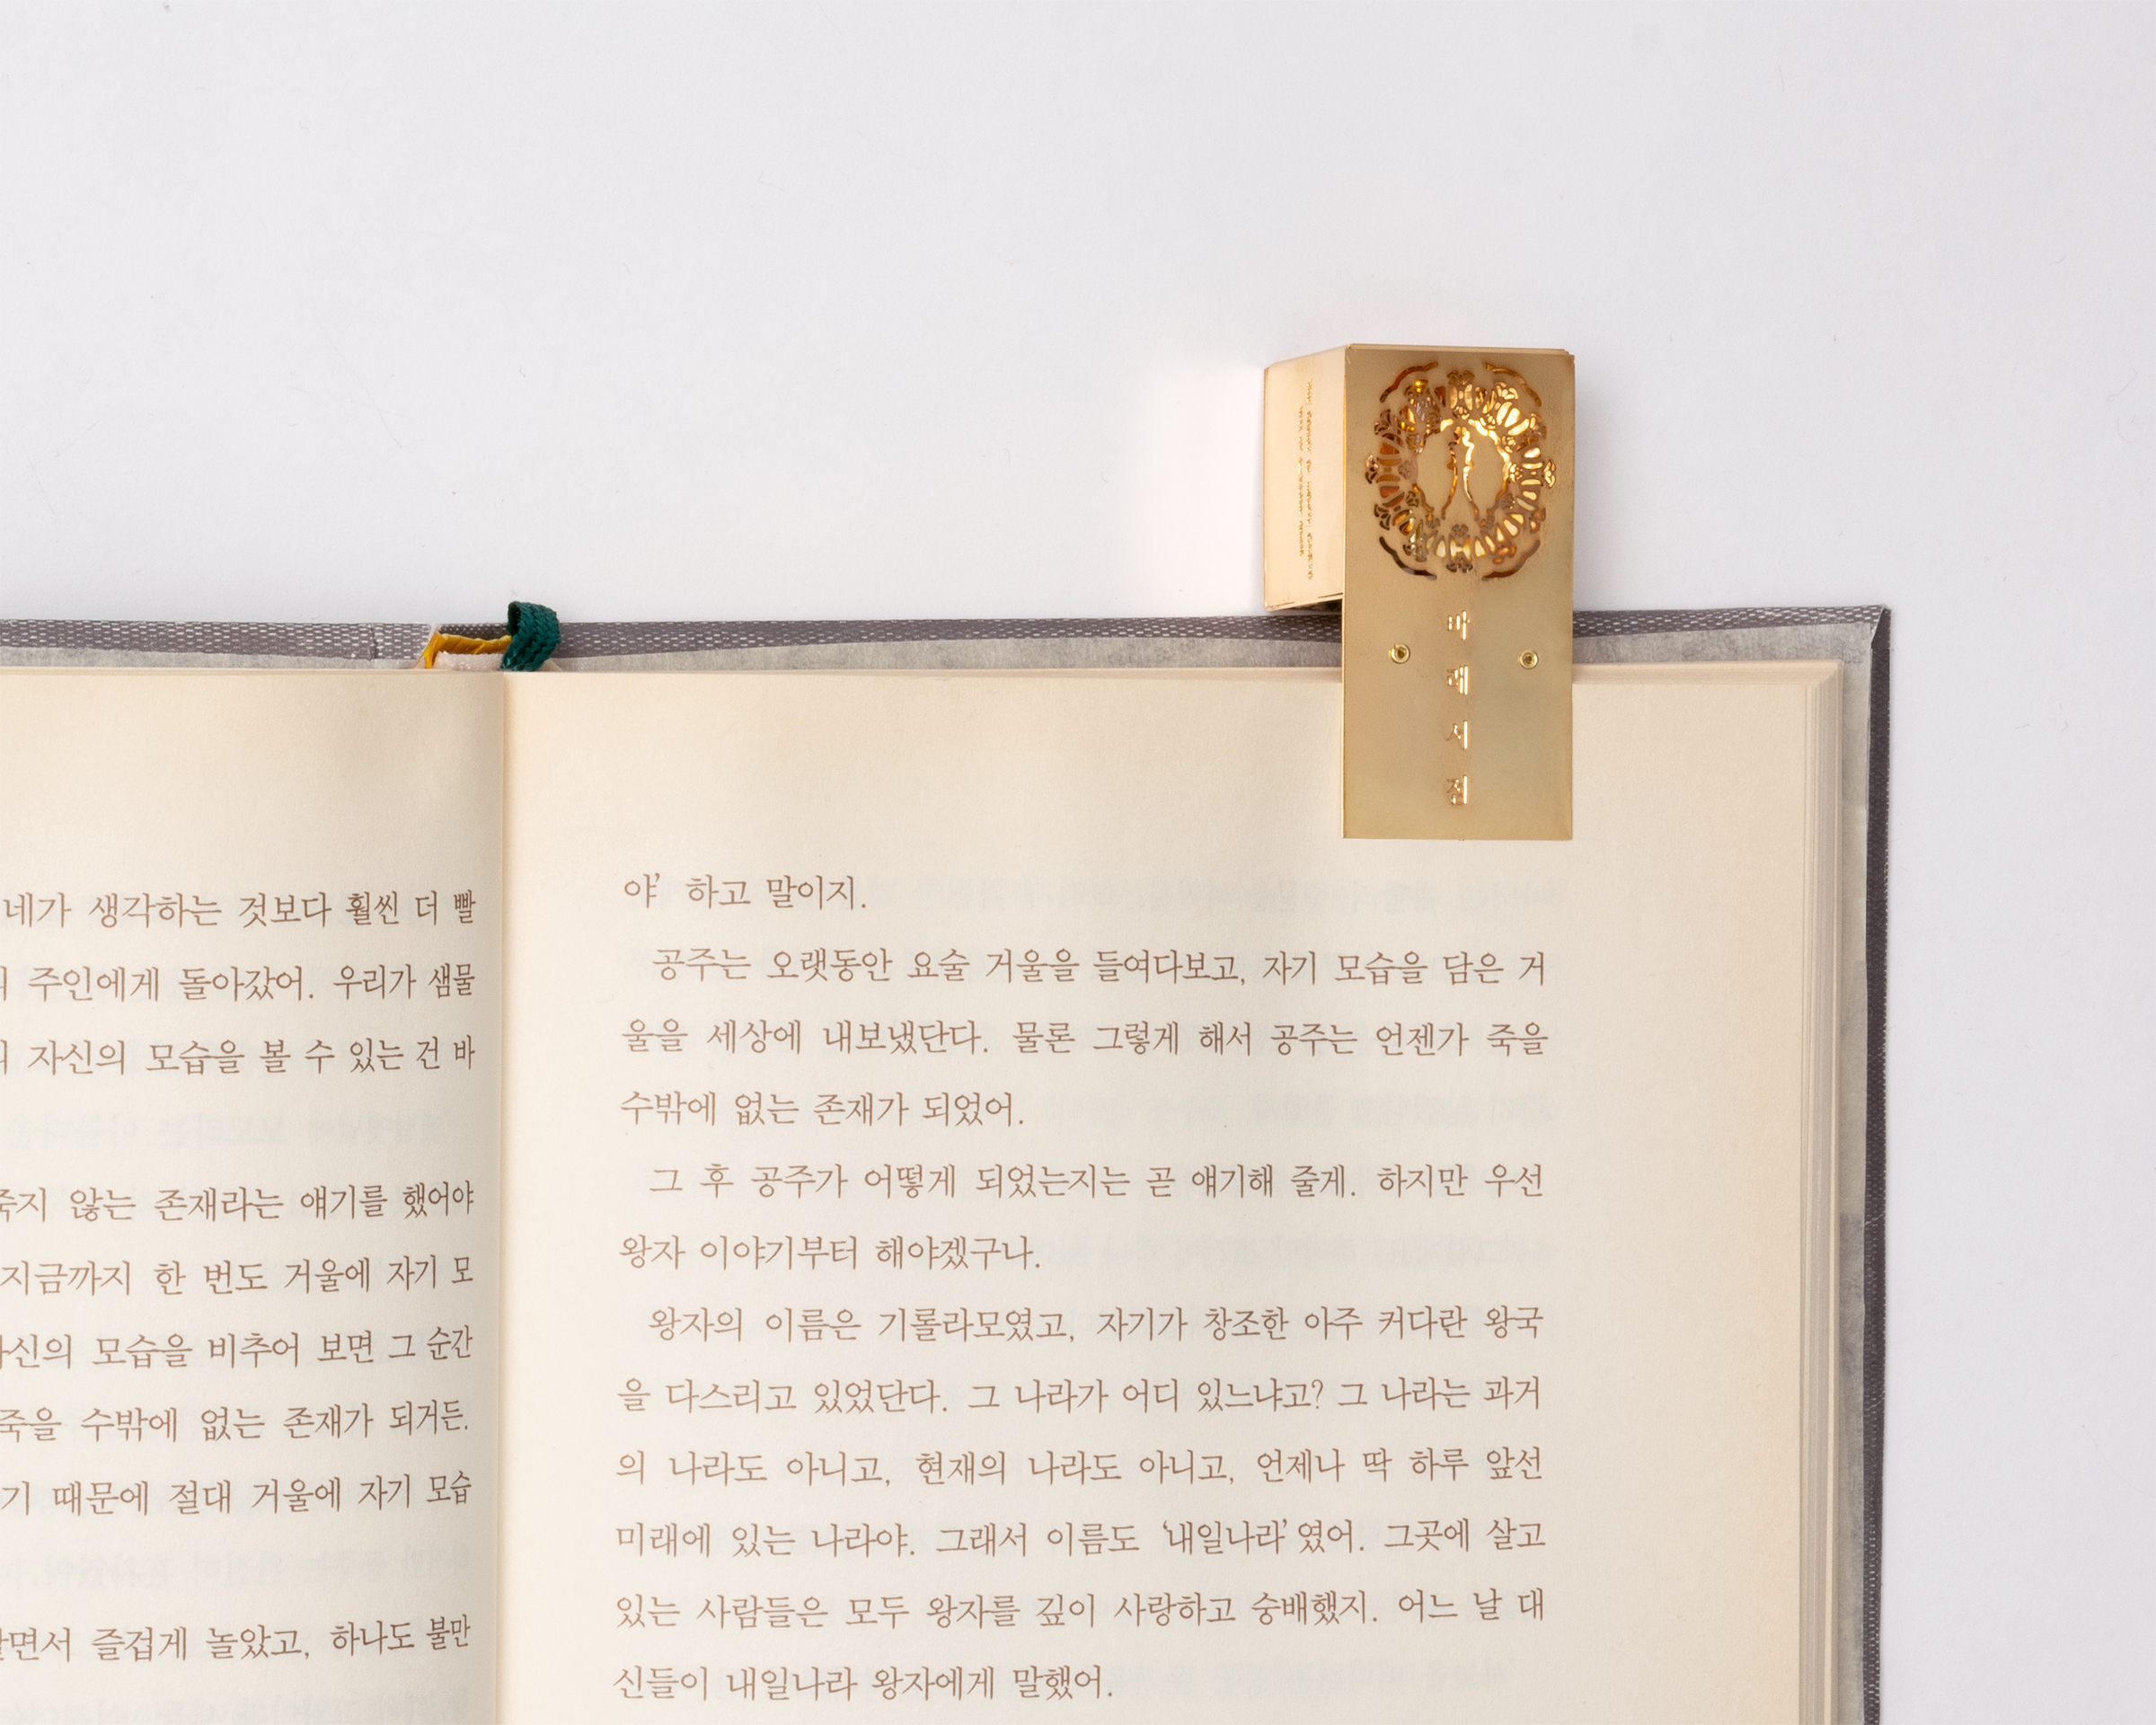 네가 생각하는 것보다 훨씬 더 빨
주인에게 돌아갔어. 우리가 샘물
자신의 모습을 볼 수 있는 건 바
죽지 않는 존재라는 얘기를 했어야
지금까지 한 번도 거울에 자기 모
자신의 모습을 비추어 보면 그 순간
죽을 수밖에 없는 존재가 되거든.
기 때문에 절대 거울에 자기 모습
면서 즐겁게 놀았고, 하나도 불만
바래서점
야’ 하고 말이지.
공주는 오랫동안 요술 거울을 들여다보고, 자기 모습을 담은 거
울을 세상에 내보냈단다. 물론 그렇게 해서 공주는 언젠가 죽을
수밖에 없는 존재가 되었어.
그 후 공주가 어떻게 되었는지는 곧 얘기해 줄게. 하지만 우선
왕자 이야기부터 해야겠구나.
왕자의 이름은 기롤라모였고, 자기가 창조한 아주 커다란 왕국
을 다스리고 있었단다. 그 나라가 어디 있느냐고? 그 나라는 과거
의 나라도 아니고, 현재의 나라도 아니고, 언제나 딱 하루 앞선
미래에 있는 나라야. 그래서 이름도 ‘내일나라’였어. 그곳에 살고
있는 사람들은 모두 왕자를 깊이 사랑하고 숭배했지. 어느 날 대
신들이 내일나라 왕자에게 말했어.